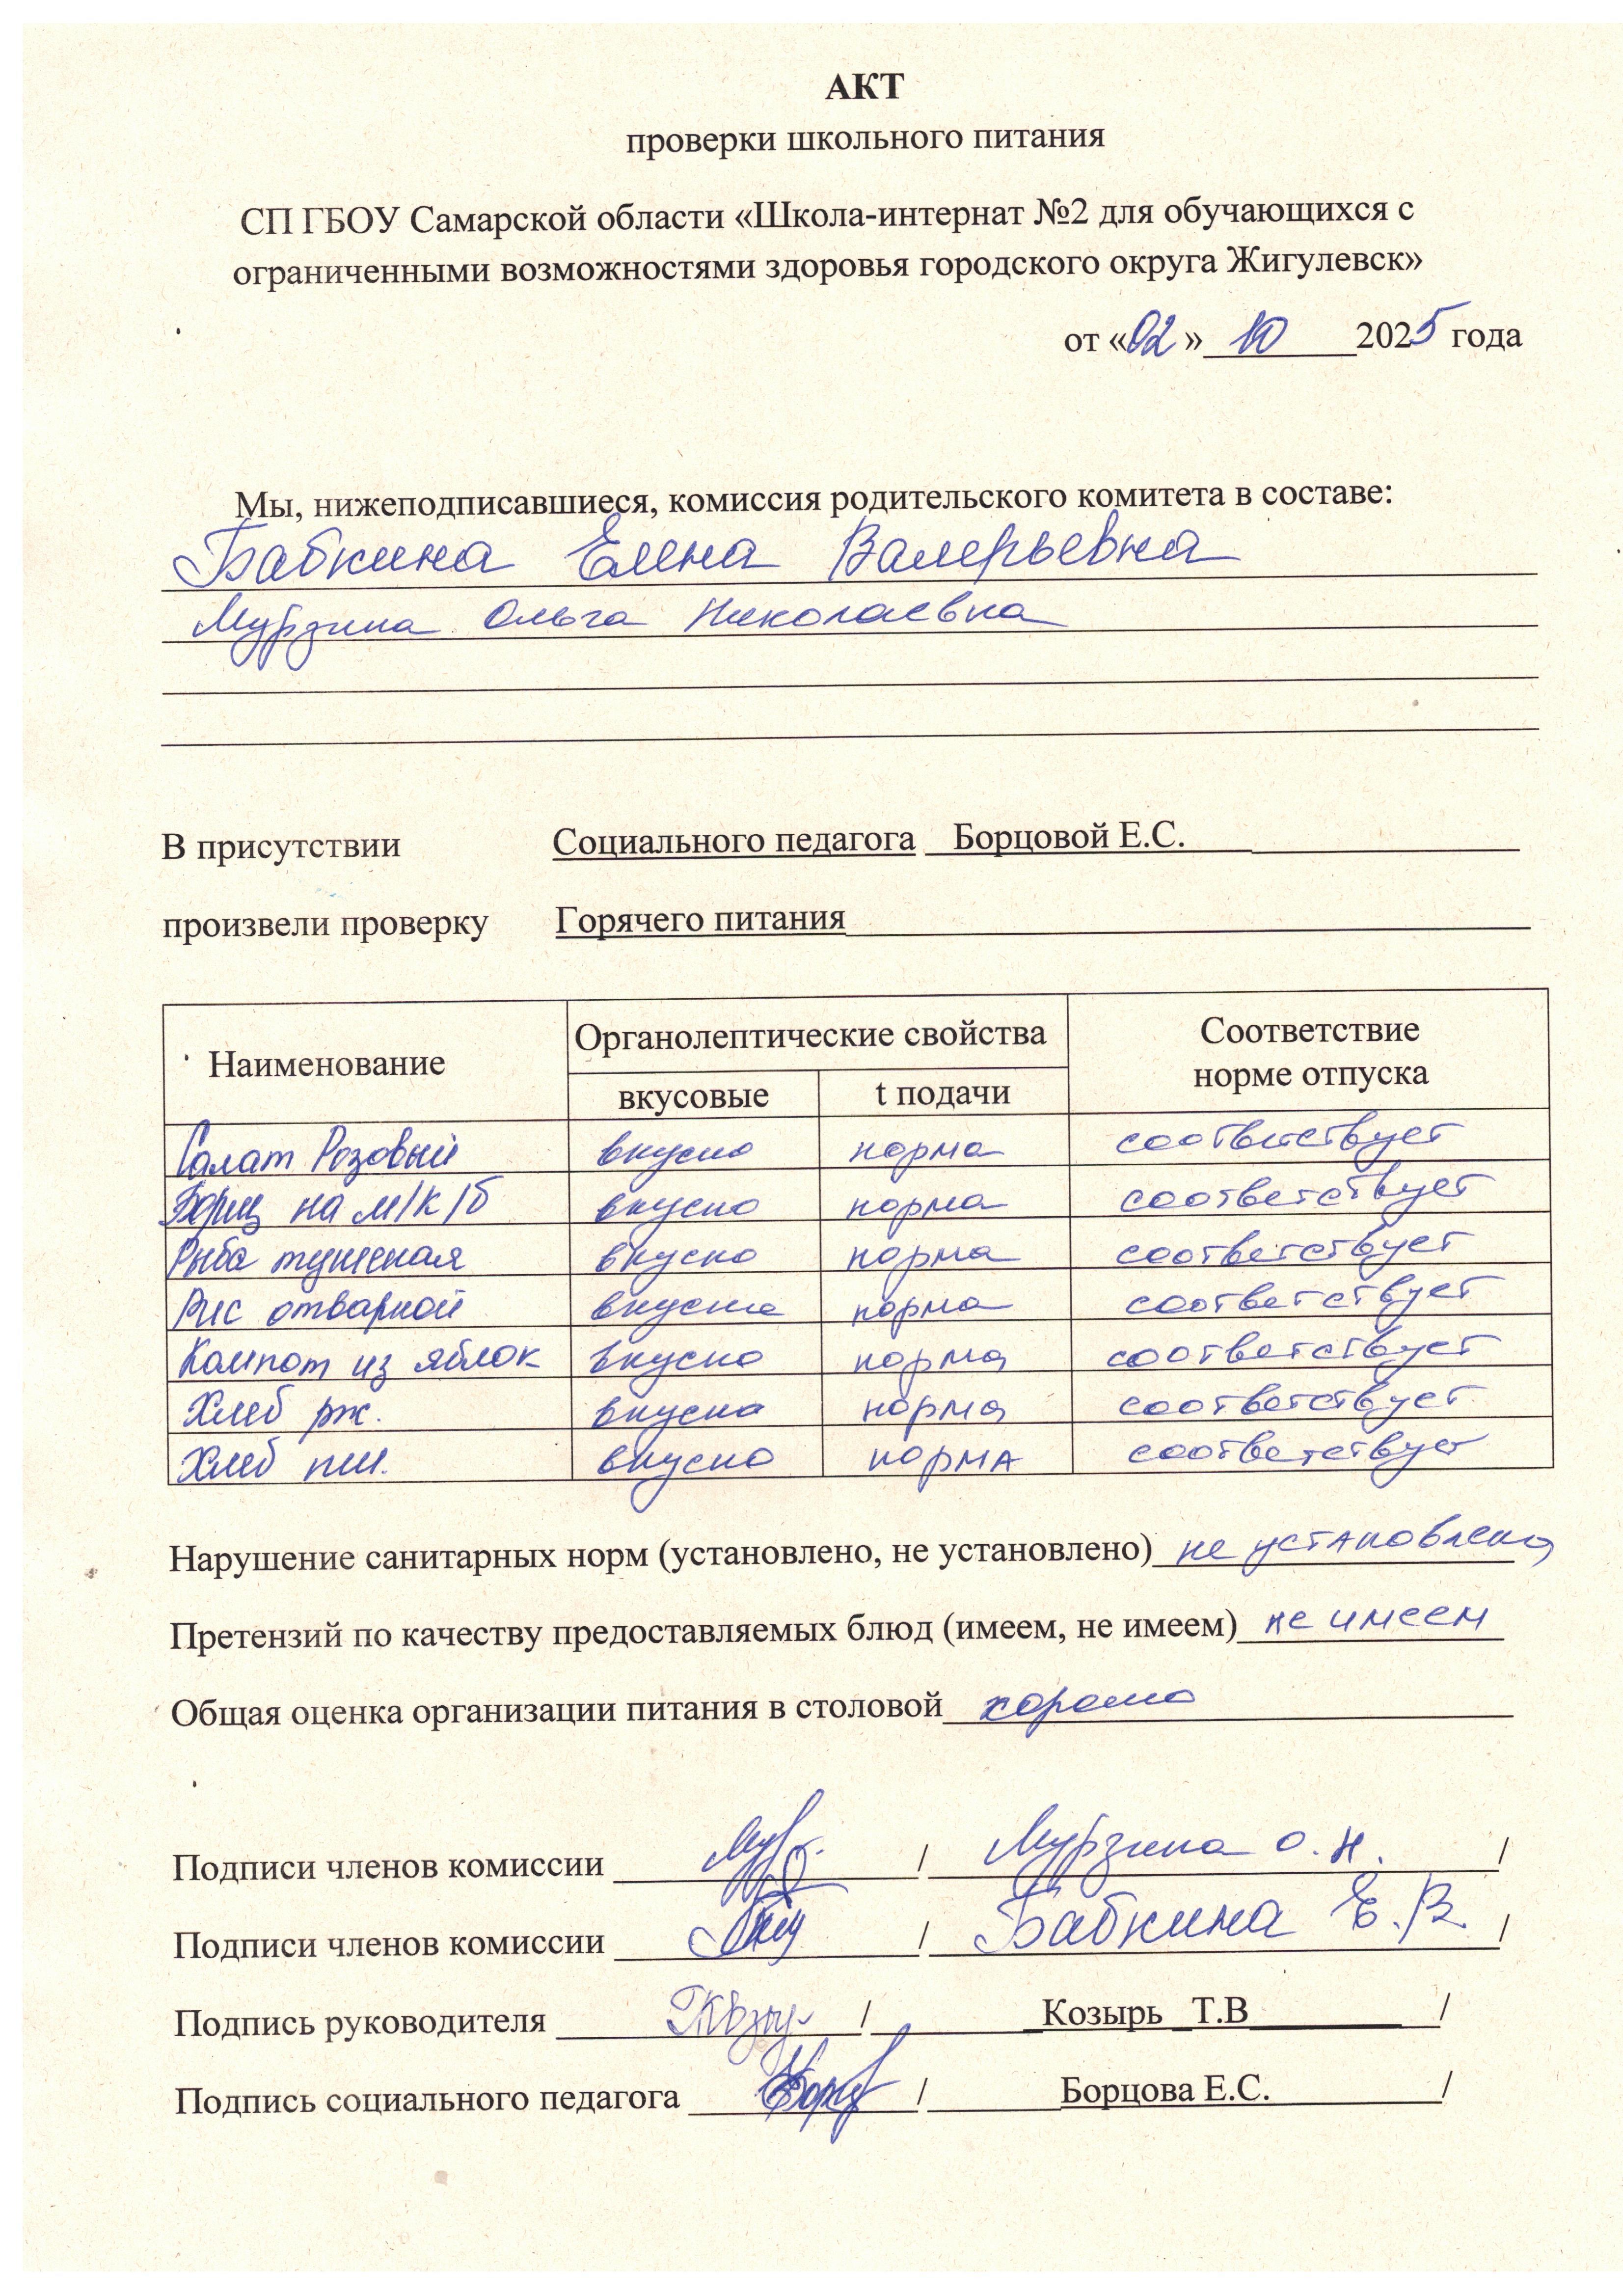 АКТ
проверки школьного питания
СП ГБОУ Самарской области «Школа-интернат №2 для обучающихся с
ограниченными возможностями здоровья городского округа Жигулевск»
от «02» 10 2025 года
Мы, нижеподписавшиеся, комиссия родительского комитета в составе:
Бабкина Елена Валерьевна
Мурзина Ольга Николаевна
В присутствии Социального педагога Борцовой Е.С.
произвели проверку Горячего питания
Наименование Органолептические свойства Соответствие норме отпуска
вкусовые t подачи
Салат Розовый вкусно норма соответствует
Борщ на м/к/б вкусно норма соответствует
Рыба тушеная вкусно норма соответствует
Рис отварной вкусно норма соответствует
Компот из яблок вкусно норма соответствует
Хлеб рж. вкусно норма соответствует
Хлеб пш. вкусно норма соответствует
Нарушение санитарных норм (установлено, не установлено) не установлено
Претензий по качеству предоставляемых блюд (имеем, не имеем) не имеем
Общая оценка организации питания в столовой хорошо
Подписи членов комиссии / Мурзина О.Н. /
Подписи членов комиссии / Бабкина Е.В. /
Подпись руководителя / Козырь Т.В /
Подпись социального педагога / Борцова Е.С. /